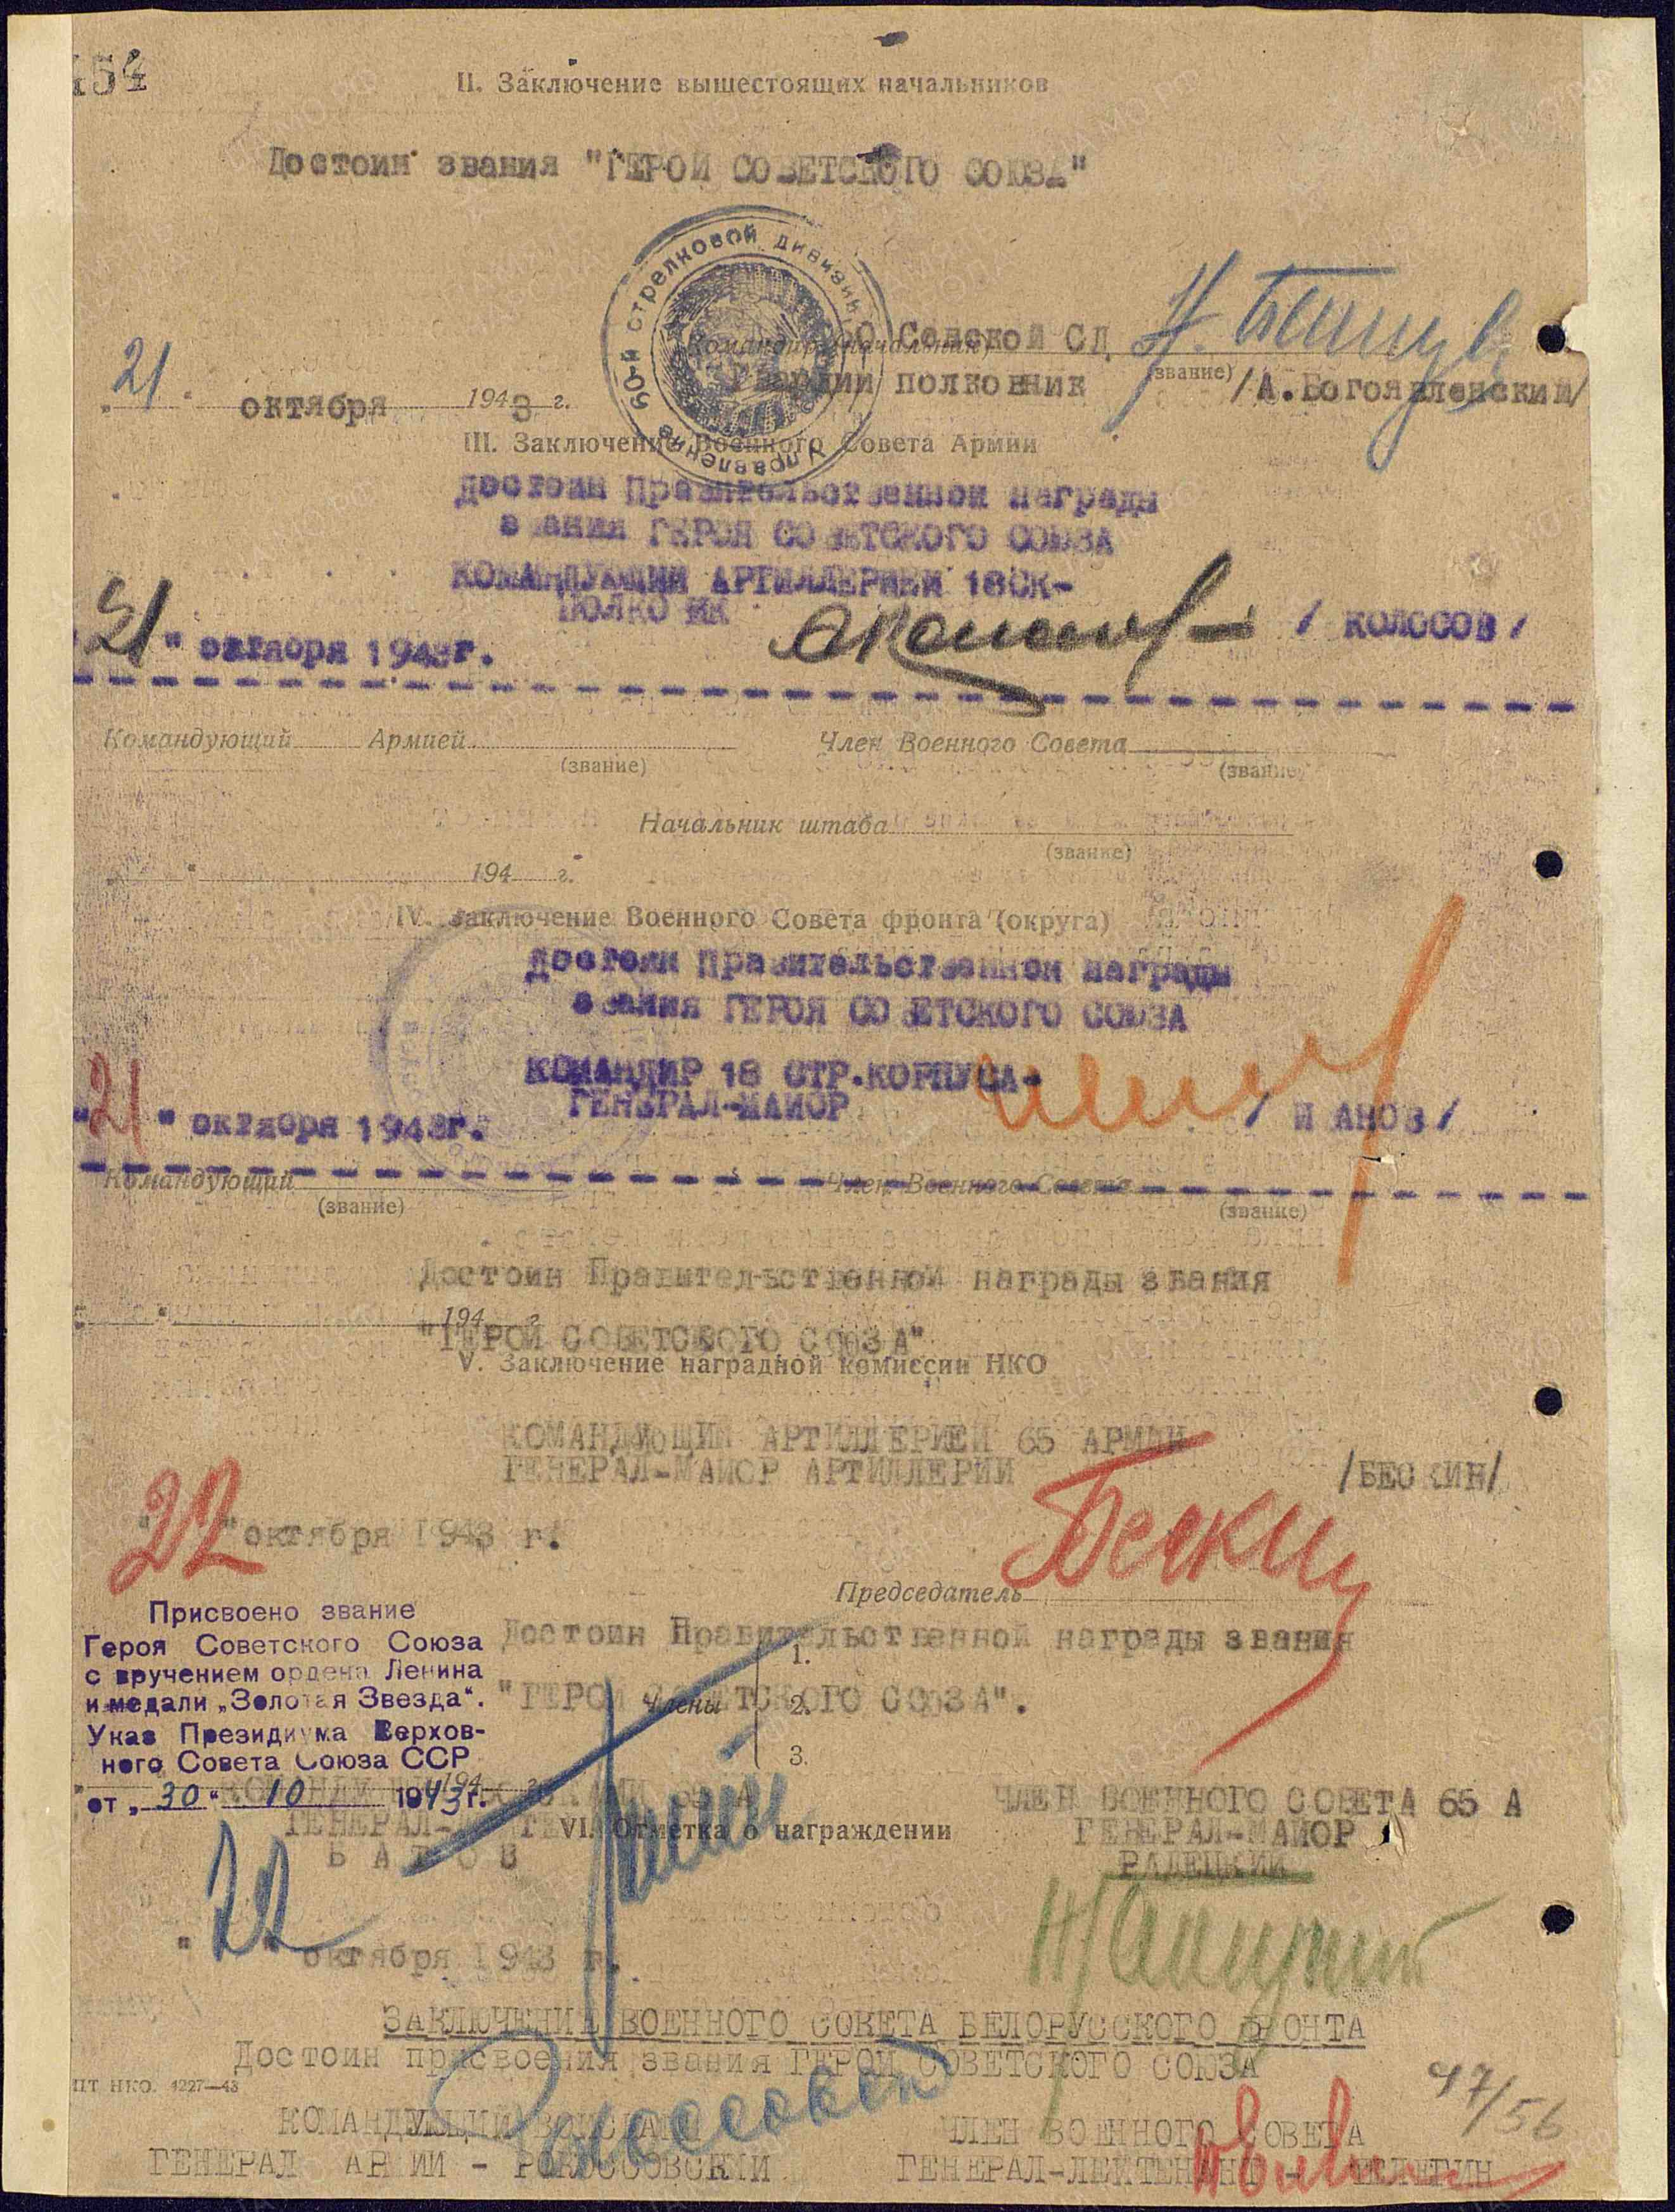 454
II. Заключение вышестоящих начальников
Достоин звания "ГЕРОЙ СОВЕТСКОГО СОЮЗА"
60-й стрелковой дивизии
Управление
Командир (начальник)
60 Севской СД
гвардии полковник
(звание)
/А.Богоявленский/
"21" октября 1943 г.
III. Заключение Военного Совета Армии
достоин Правительственной награды
звания ГЕРОЯ СОВЕТСКОГО СОЮЗА
КОМАНДУЮЩИЙ АРТИЛЛЕРИЕЙ 18СК-
ПОЛКО ИК
/ КОЛОСОВ /
21" октября 1943г.
Командующий Армией
Член Военного Совета
(звание)
(звание)
Начальник штаба
(звание)
" " 194 г.
IV. Заключение Военного Совета фронта (округа)
достоин Правительственной награды
звания ГЕРОЯ СО ЕТСКОГО СОЮЗА
КОМАНДИР 18 СТР.КОРПУСА-
ГЕНЕРАЛ-МАЙОР
/ И АНОВ /
"21" октября 1943г.
Командующий
Член Военного Совета
(звание)
(звание)
Достоин Правительственной награды звания
" " 194 г.
"ГЕРОЙ СОВЕТСКОГО СОЮЗА"
V. Заключение наградной комиссии НКО
КОМАНДУЮЩИЙ АРТИЛЛЕРИЕЙ 65 АРМИИ
ГЕНЕРАЛ-МАЙОР АРТИЛЛЕРИИ
/БЕСКИН/
Бескин
"22" октября 1943 г.
Председатель
Присвоено звание
Героя Советского Союза
с вручением ордена Ленина
и медали „Золотая Звезда".
Указ Президиума Верхов-
ного Совета Союза ССР
от „30" 10 1943 г.
Достоин Правительственной награды звания
"ГЕРОЙ СОВЕТСКОГО СОЮЗА".
Члены
1.
2.
3.
194 г.
КОМАНДУЮЩИЙ ВОЙСКАМИ 65 А
ГЕНЕРАЛ-ЛЕЙТЕНАНТ
БАТОВ
VI. Отметка о награждении
ЧЛЕН ВОЕННОГО СОВЕТА 65 А
ГЕНЕРАЛ-МАЙОР
РАДЕЦКИЙ
"22" октября 1943 г.
ЗАКЛЮЧЕНИЕ ВОЕННОГО СОВЕТА БЕЛОРУССКОГО ФРОНТА
Достоин присвоения звания ГЕРОЙ СОВЕТСКОГО СОЮЗА
НКО. 4227—43
47/56
КОМАНДУЮЩИЙ ВОЙСКАМИ
ЧЛЕН ВОЕННОГО СОВЕТА
ГЕНЕРАЛ АРМИИ - РОКОССОВСКИЙ
ГЕНЕРАЛ-ЛЕЙТЕНАНТ - ТЕЛЕГИН